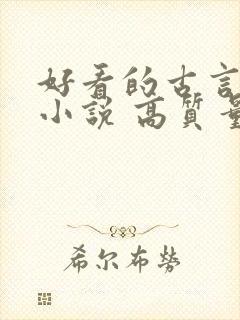 好看的古言
小説 高質量
希尔布勢